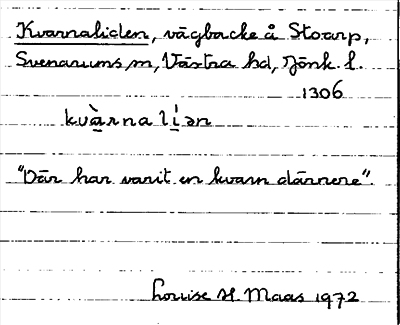 Kvarnaliden, vägbacke å Stoarp,
Svenarums sn, Västra hd, Jönk. l.
1306
kvàrnalíən
"Där har varit en kvarn därnere".
Louise H. Maas 1972